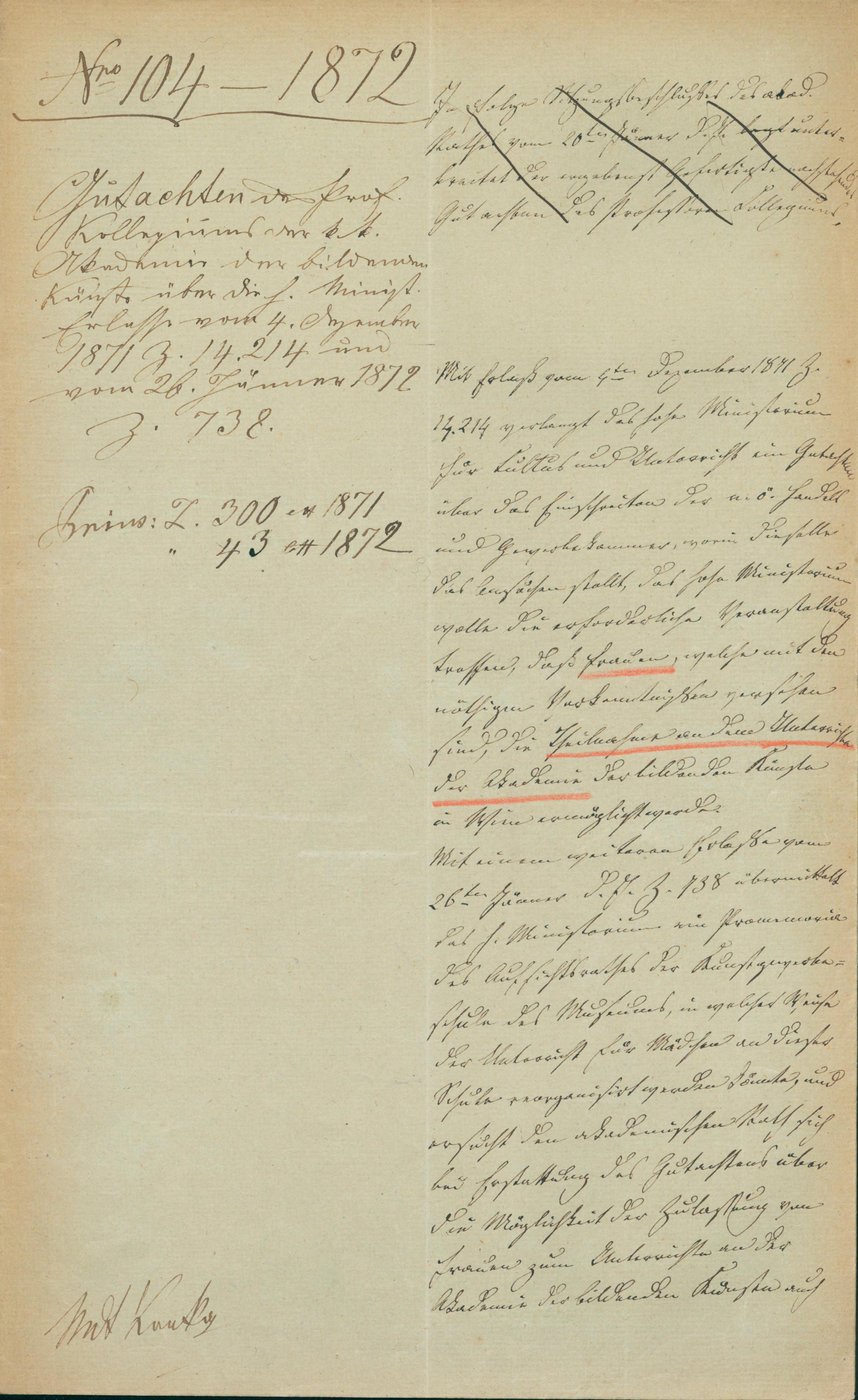 Nro 104 – 1872
Gutachten des Prof.
Kollegiums der k.k.
Akademie der bildenden
Künste über die h. Minist.
Erlasse vom 4. Dezember
1871 Z. 14.214 und
vom 26. Jänner 1872
Z. 738.
Z. 300 ex 1871
" 43 ex 1872
In Folge Sitzungsbeschlusses des akad.
Rathes vom 20ten Jänner d. J. legt unter-
breitet der ergebenst Gefertigte nachstehendes
Gutachten des Professoren Collegiums.
Mit Erlaß vom 4ten Dezember 1871 Z.
14.214 verlangt das hohe Ministerium
für Kultus und Unterricht ein Gutachten
über das Einschreiten der n. ö. Handels
und Gewerbekammer, worin dieselbe
das Ansuchen stellt, das hohe Ministerium
wolle die erforderliche Veranstaltung
treffen, daß Frauen, welche mit den
nöthigen Vorkenntnißen versehen
sind, die Theilnahme an dem Unterrichte
der Akademie der bildenden Künste
in Wien ermöglicht werde.
Mit einem weiteren Erlaße vom
26ten Jänner d. J. Z. 738 übermittelt
das h. Ministerium ein Promemoria
des Aufsichtsrathes der Kunstgewerbe=
schule des Museums, in welcher Weise
der Unterricht für Mädchen an dieser
Schule reorganisirt werden könnte, und
ersucht den akademischen Rath sich
bei Erstattung des Gutachtens über
die Möglichkeit der Zulaßung von
Frauen zum Unterrichte an der
Akademie der bildenden Künste auch